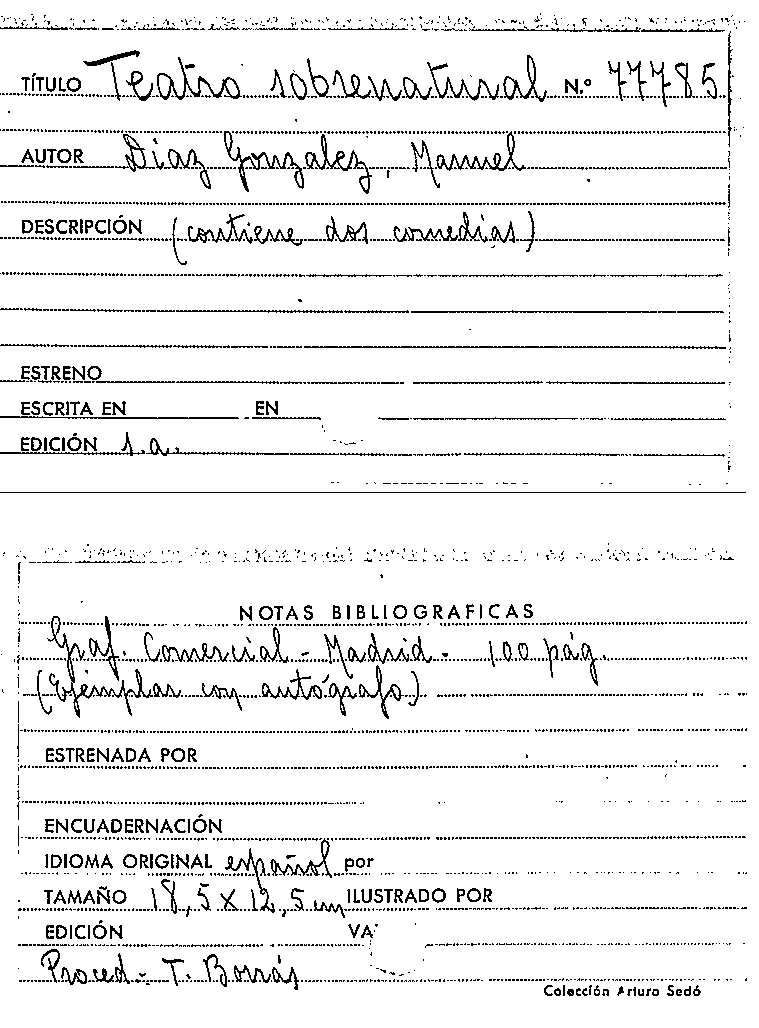 TÍTULO Teatro sobrenatural N.º 77785
AUTOR Diaz Gonzalez, Manuel
DESCRIPCIÓN (contiene dos comedias)
ESTRENO
ESCRITA EN EN
EDICIÓN s.a.
NOTAS BIBLIOGRAFICAS
Graf. Comercial - Madrid - 100 pág.
(Ejemplar con autógrafo)
ESTRENADA POR
ENCUADERNACIÓN
IDIOMA ORIGINAL español por
TAMAÑO 18,5 x 12,5 cm ILUSTRADO POR
EDICIÓN VA
Proced.- T. Borrás
Colección Arturo Sedó